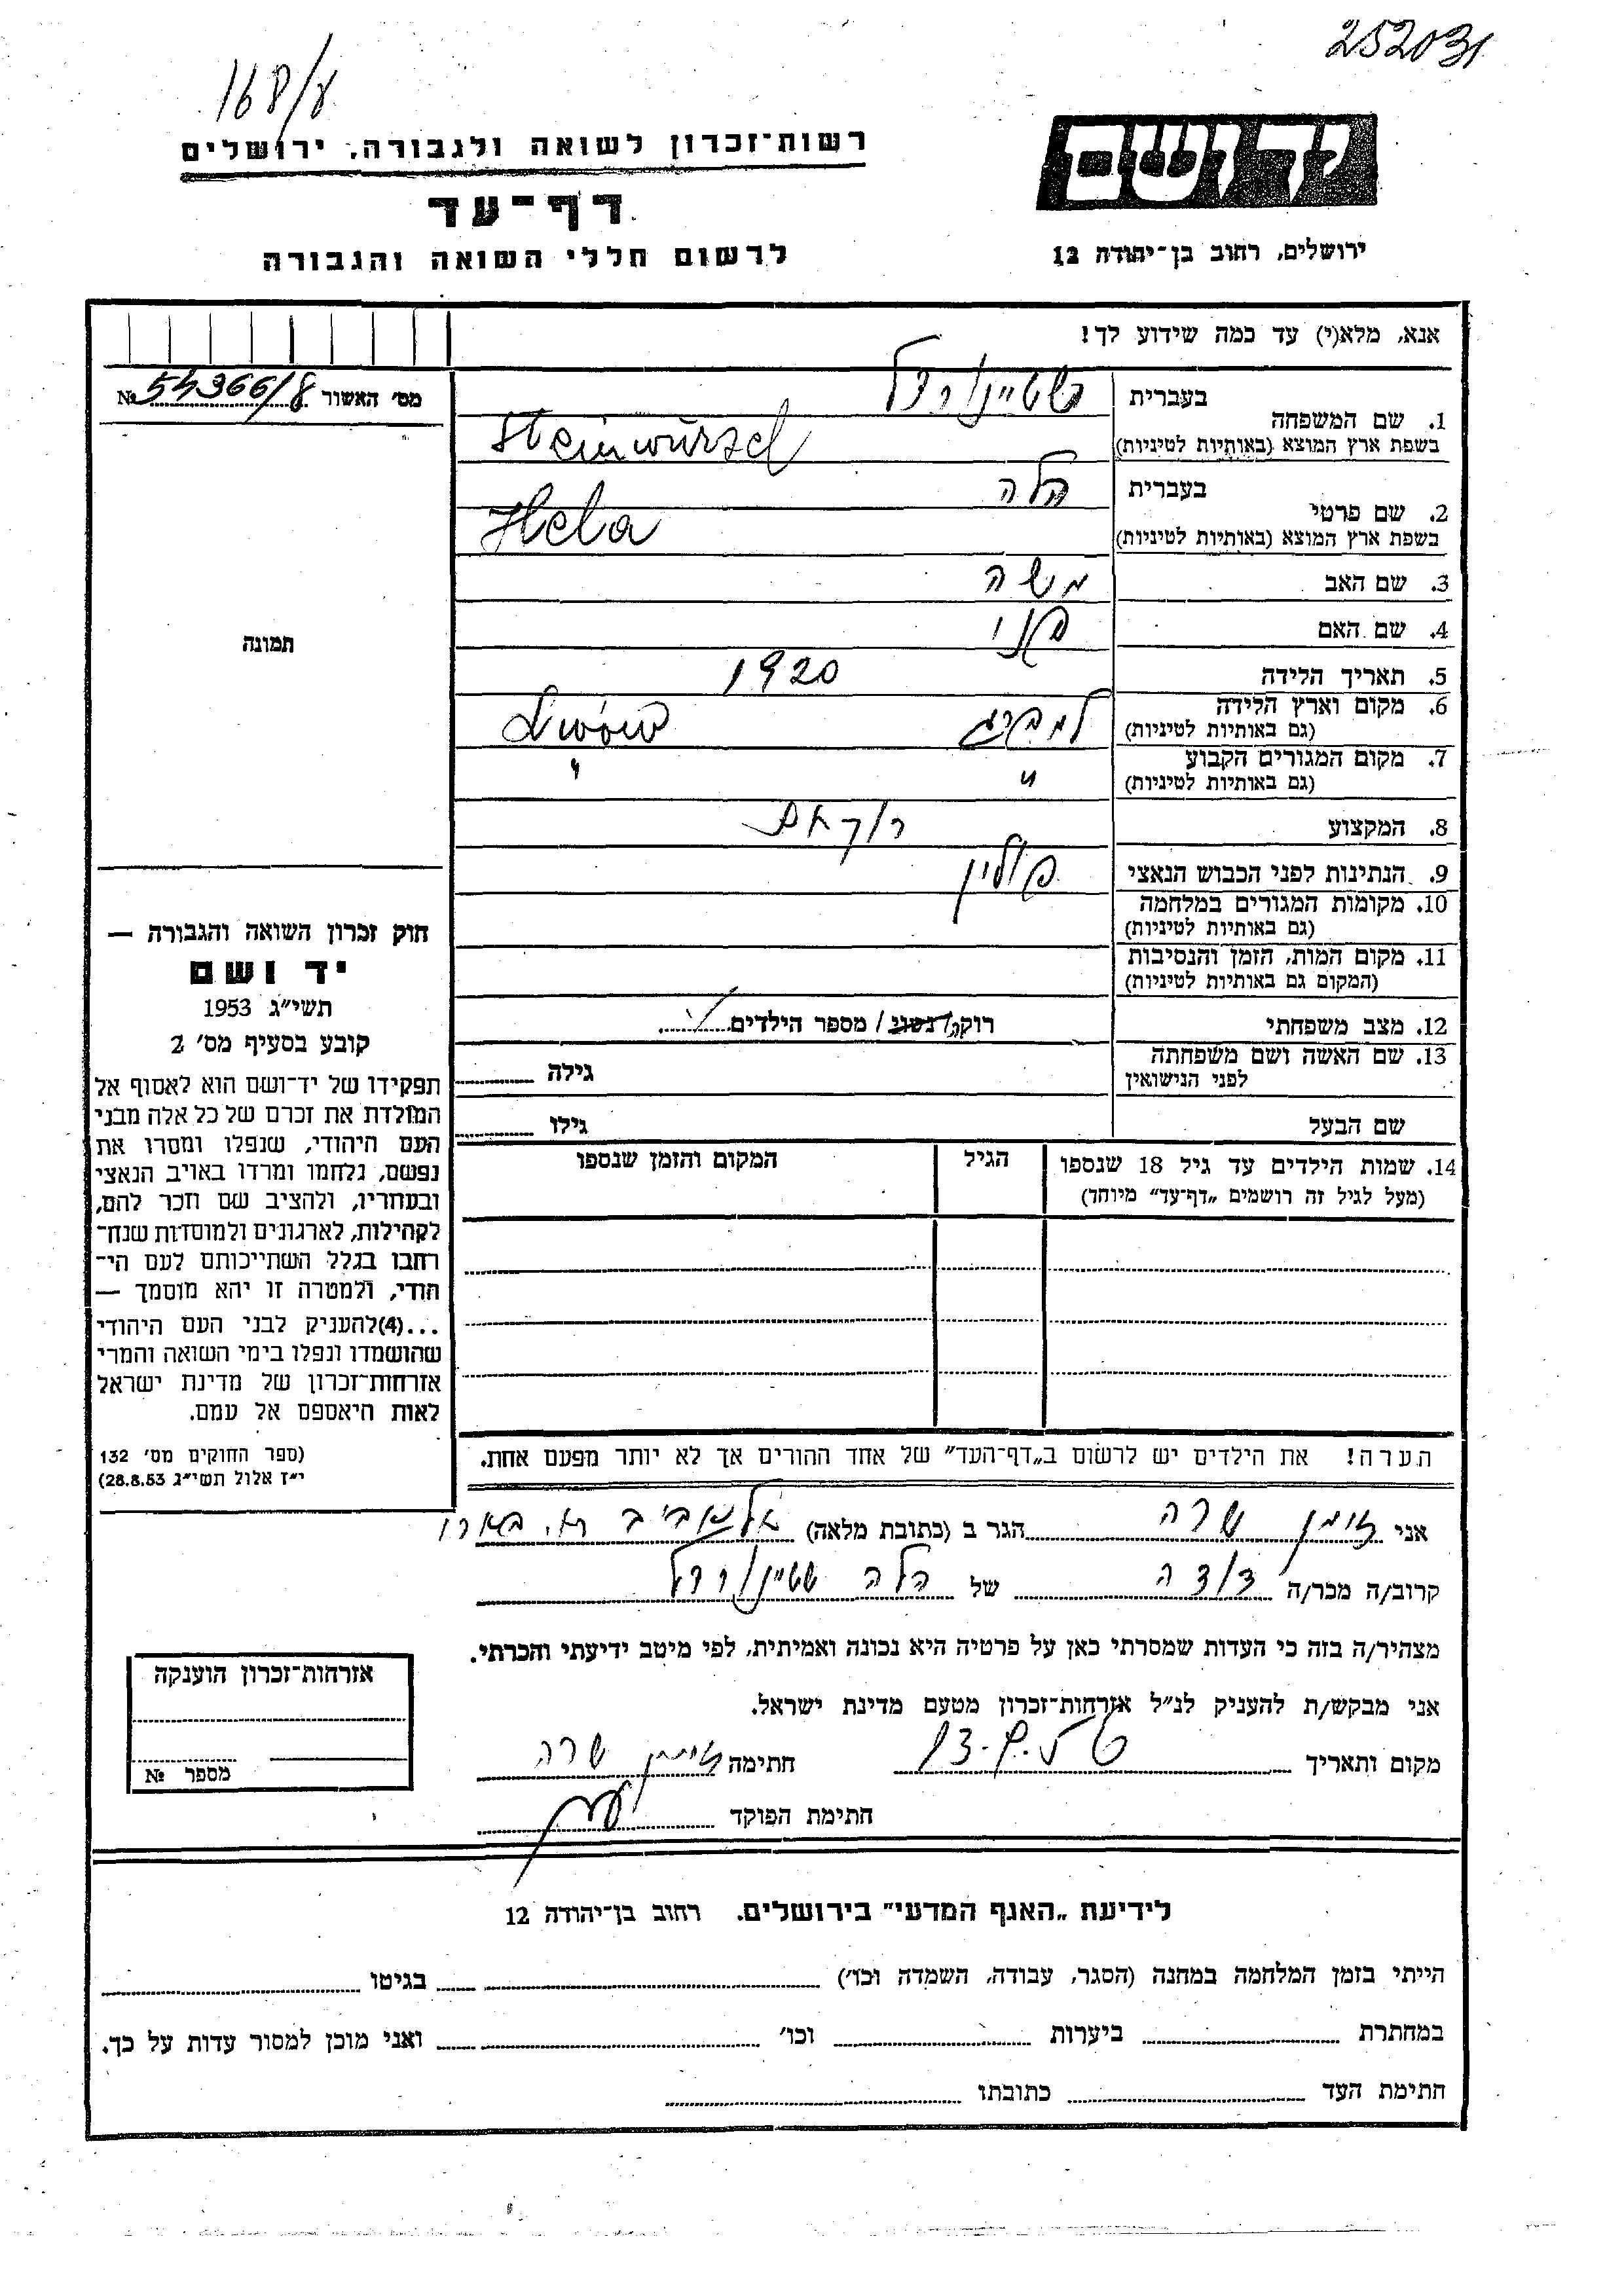 252031
168/ע
יד ושם
רשות־זכרון לשואה ולגבורה, ירושלים
דף־עד
ירושלים, רחוב בן־יהודה 12
לרשום חללי השואה והגבורה
אנא, מלא(י) עד כמה שידוע לך!
מס׳ האשור 54366/8 №
1. שם המשפחה
בעברית שטיינוורצל
בשפת ארץ המוצא (באותיות לטיניות) Steinwürzel
2. שם פרטי
בעברית הלה
בשפת ארץ המוצא (באותיות לטיניות) Hela
3. שם האב משה
4. שם האם פני
תמונה
5. תאריך הלידה 1920
6. מקום וארץ הלידה
(גם באותיות לטיניות) למברג Lwów
7. מקום המגורים הקבוע
(גם באותיות לטיניות) " "
8. המקצוע רוקחת
9. הנתינות לפני הכבוש הנאצי פולין
10. מקומות המגורים במלחמה
(גם באותיות לטיניות)
11. מקום המות, הזמן והנסיבות
(המקום גם באותיות לטיניות)
12. מצב משפחתי רוקה/נשוי/ מספר הילדים
13. שם האשה ושם משפחתה
לפני הנישואין גילה
שם הבעל גילו
14. שמות הילדים עד גיל 18 שנספו
(מעל לגיל זה רושמים „דף־עד” מיוחד)
הגיל
המקום והזמן שנספו
הערה! את הילדים יש לרשום ב„דף־העד” של אחד ההורים אך לא יותר מפעם אחת.
חוק זכרון השואה והגבורה —
יד ושם
תשי״ג 1953
קובע בסעיף מס׳ 2
תפקידו של יד־ושם הוא לאסוף אל
המולדת את זכרם של כל אלה מבני
העם היהודי, שנפלו ומסרו את
נפשם, נלחמו ומרדו באויב הנאצי
ובעוזריו, ולהציב שם וזכר להם,
לקהילות, לארגונים ולמוסדות שנח־
רחבו בגלל השתייכותם לעם הי־
הודי, ולמטרה זו יהא מוסמך —
...(4)להעניק לבני העם היהודי
שהושמדו ונפלו בימי השואה והמרי
אזרחות־זכרון של מדינת ישראל
לאות היאספם אל עמם.
(ספר החוקים מס׳ 132
י״ז אלול תשי״ג 28.8.53)
אני זימן שרה הגר ב (כתובת מלאה) תל אביב
קרוב/ה מכר/ה דודה של הלה שטיינוורצל
מצהיר/ה בזה כי העדות שמסרתי כאן על פרטיה היא נכונה ואמיתית, לפי מיטב ידיעתי והכרתי.
אני מבקש/ת להעניק לנ״ל אזרחות־זכרון מטעם מדינת ישראל.
מקום ותאריך חתימה זימן שרה
חתימת הפוקד
אזרחות־זכרון הוענקה
מספר №
לידיעת „האגף המדעי” בירושלים. רחוב בן־יהודה 12
הייתי בזמן המלחמה במחנה (הסגר, עבודה, השמדה וכו׳) בגיטו
במחתרת ביערות וכו׳ ואני מוכן למסור עדות על כך.
חתימת העד כתובתו